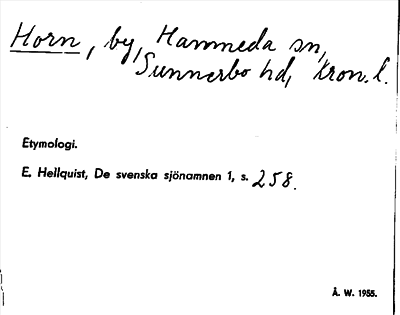 Horn, by, Hamneda sn,
Sunnerbo hd, Kron. l.
Etymologi.
E. Hellquist, De svenska sjönamnen 1, s. 258.
Å. W. 1955.